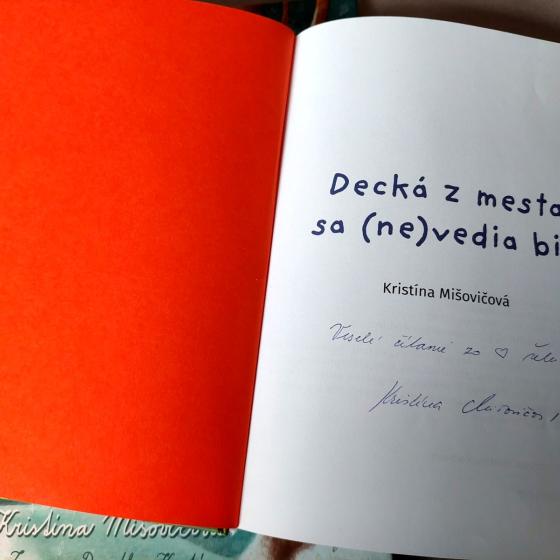 Decká z mesta
sa (ne)vedia bi
Kristína Mišovičová
Veselé čítanie zo ♡
Kristína Mišovičová
Kristína Mišovičová